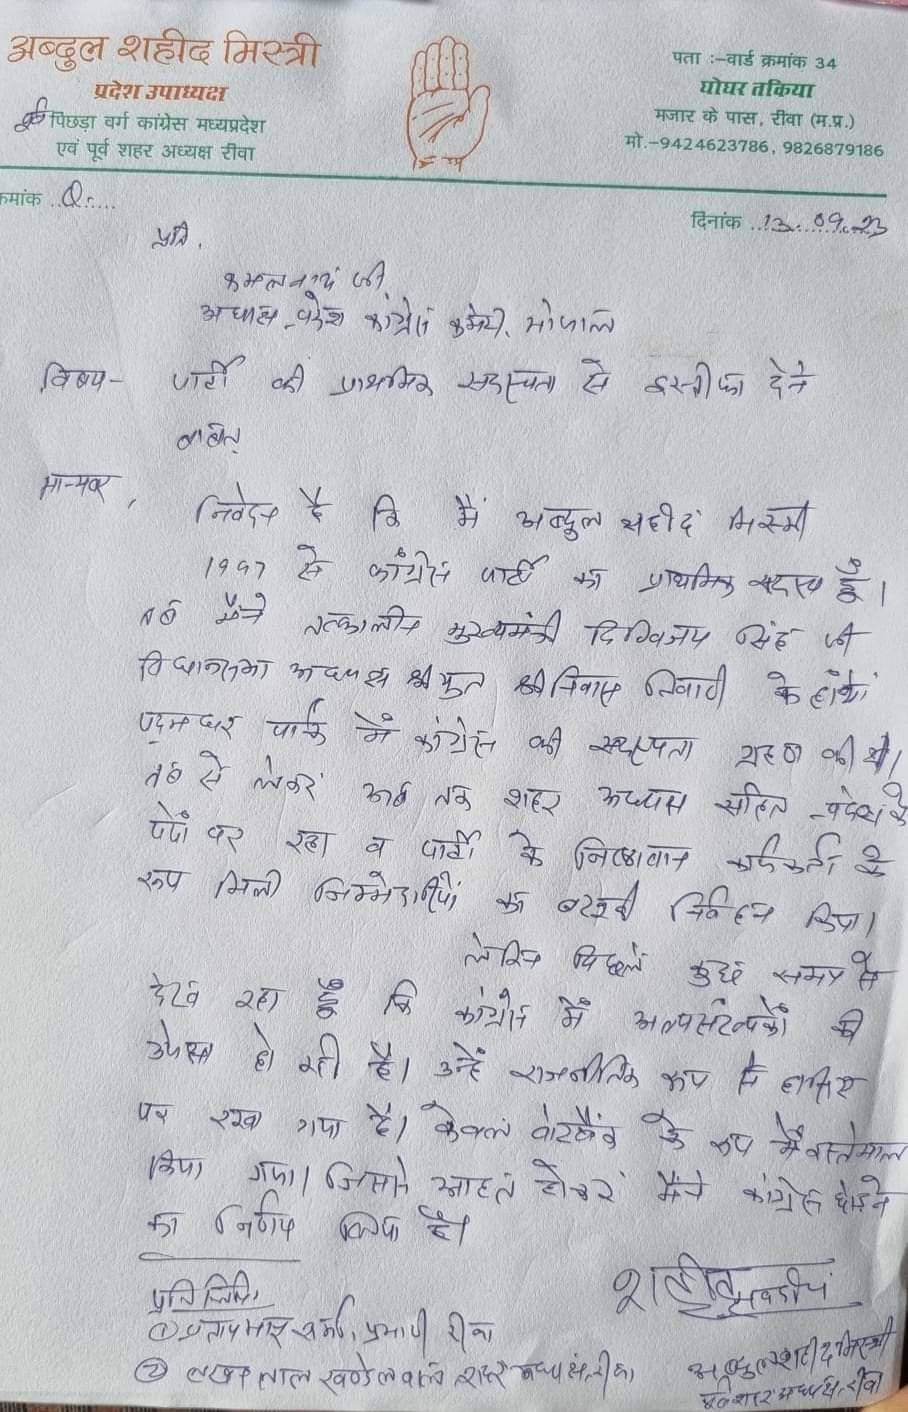 अब्दुल शहीद मिस्त्री
प्रदेश उपाध्यक्ष
पिछड़ा वर्ग कांग्रेस मध्यप्रदेश
एवं पूर्व शहर अध्यक्ष रीवा
पता :-वार्ड क्रमांक 34
घोघर तकिया
मजार के पास, रीवा (म.प्र.)
मो.-9424623786, 9826879186
क्रमांक ..Q......
दिनांक ..13...09...23
प्रति,
कमलनाथ जी
अध्यक्ष प्रदेश कांग्रेस कमेटी, भोपाल
विषय- पार्टी की प्राथमिक सदस्यता से इस्तीफा देने
बाबत्
मान्यवर,
निवेदन है कि मैं अब्दुल शहीद मिस्त्री
1997 से कांग्रेस पार्टी का प्राथमिक सदस्य हूँ।
तब मैंने तत्कालीन मुख्यमंत्री दिग्विजय सिंह जी
विधानसभा अध्यक्ष श्रीयुत श्रीनिवास तिवारी के हाँथों
पद्मधर पार्क में कांग्रेस की सदस्यता ग्रहण की थी।
तब से लेकर अब तक शहर अध्यक्ष सहित प्रदेश के
पदों पर रहा व पार्टी के निष्ठावान कार्यकर्ता के
रूप मिली जिम्मेदारीयों का बखूबी निर्वहन किया।
लेकिन पिछले कुछ समय से
देख रहा हूँ कि कांग्रेस में अल्पसंख्यकों की
उपेक्षा हो रही है। उन्हें राजनीतिक रूप से हासिए
पर रखा गया है। केवल वोटबैंक के रूप में इस्तेमाल
किया गया। जिससे आहत होकर मैंने कांग्रेस छोड़ने
का निर्णय लिया है।
प्रतिलिपि,
① प्रतापभानु शर्मा, प्रभारी रीवा
② लखन लाल खण्डेलवाल शहर अध्यक्ष, रीवा
शहीद
भवदीय
अब्दुल शहीद मिस्त्री
पूर्व शहर अध्यक्ष, रीवा